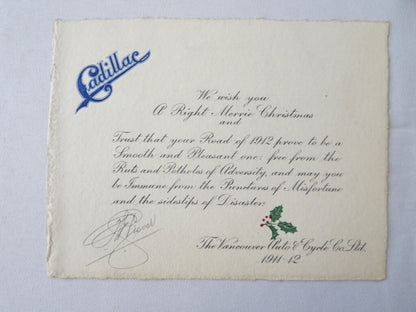 Cadillac
We wish you
A Right Merrie Christmas
and
Trust that your Road of 1912 prove to be a
Smooth and Pleasant one: free from the
Ruts and Potholes of Adversity, and may you
be Immune from the Punctures of Misfortune
and the sideslips of Disaster.
The Vancouver Auto & Cycle Co. Ltd.
1911-12